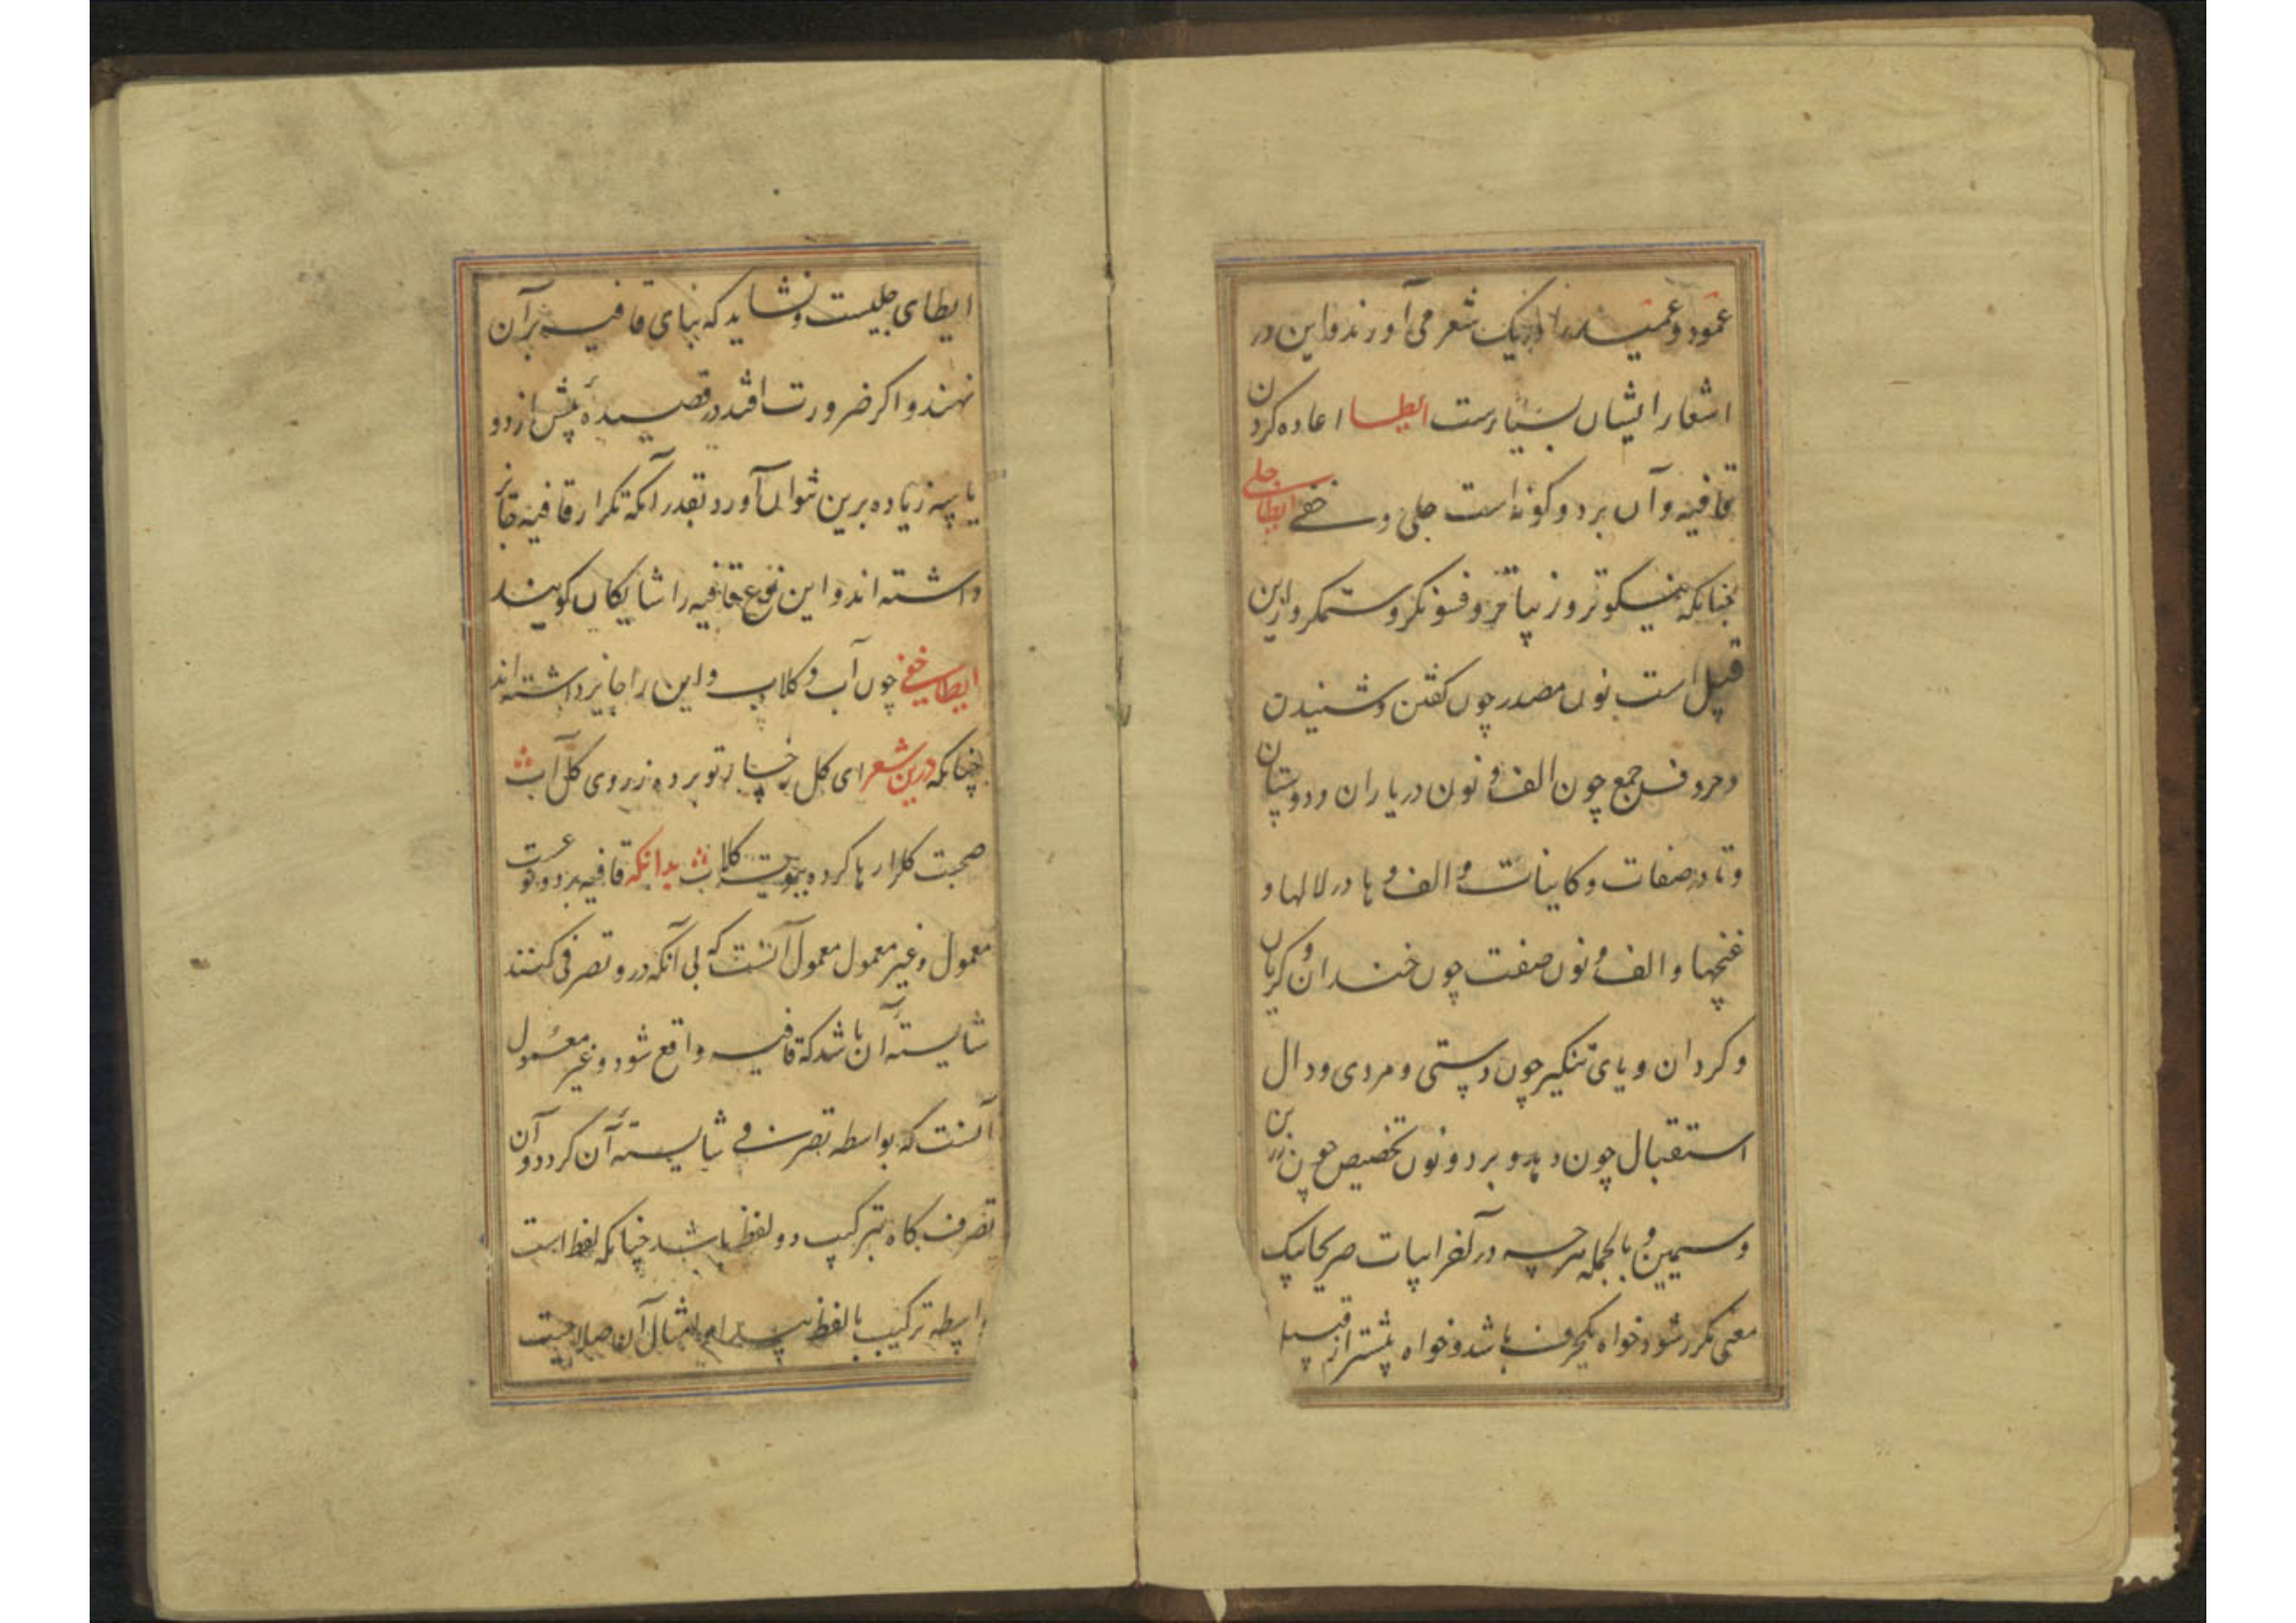 عمود و عمید را در یک شعر می آورند و این در
اشعار ایشان بسیارست ایطا اعاده کردن
قافیه و آن بر دو کونه است جلی و خفی ایطای جلی
چنانکه نیکوتر و زیباتر و فسونکر و ستمکر و ازین
قبیل است نون مصدر چون کفتن و شنیدن
و حروف جمع چون الف و نون در یاران و دوستان
و تا در صفات و کاینات و الف و ها در لالها و
غنچها و الف و نون صفت چون خندان و کریان
و کردان و یای تنکیر چون دستی و مردی و دال
استقبال چون دهد و برد و نون تخصیص چون زرین
و سیمین و بالجمله هرچه در آخر ابیات صریحا بیک
معنی مکرر شود خواه یکحرف باشد و خواه بیشتر از قبیل
ایطای جلیست و نشاید که بنای قافیه بر آن
نهند و اکر ضرورت افتد در قصیدهٔ بیش از دو
یا سه زیاده برین نتوان آورد بقدر آنکه تکرار قافیه جایز
داشته اند و این نوع قافیه را شایکان کویند
ایطای خفی چون آب و کلاب و این را جایز داشته اند
چنانکه درین شعر ای کل رخسار تو برده ز روی کل آب
صحبت کل را رها کرده ببویت کلاب بدانکه قافیه بر دو نوعست
معمول و غیر معمول معمول آنست که بی آنکه در و تصرفی کنند
شایستهٔ آن باشد که قافیه واقع شود و غیر معمول
آنست که بواسطه تصرفی شایستهٔ آن کردد و آن
تصرف کاه بترکیب دو لفظ باشد چنانکه لفظ است
واسطه ترکیب بالفظ امثال آن صلاحیت